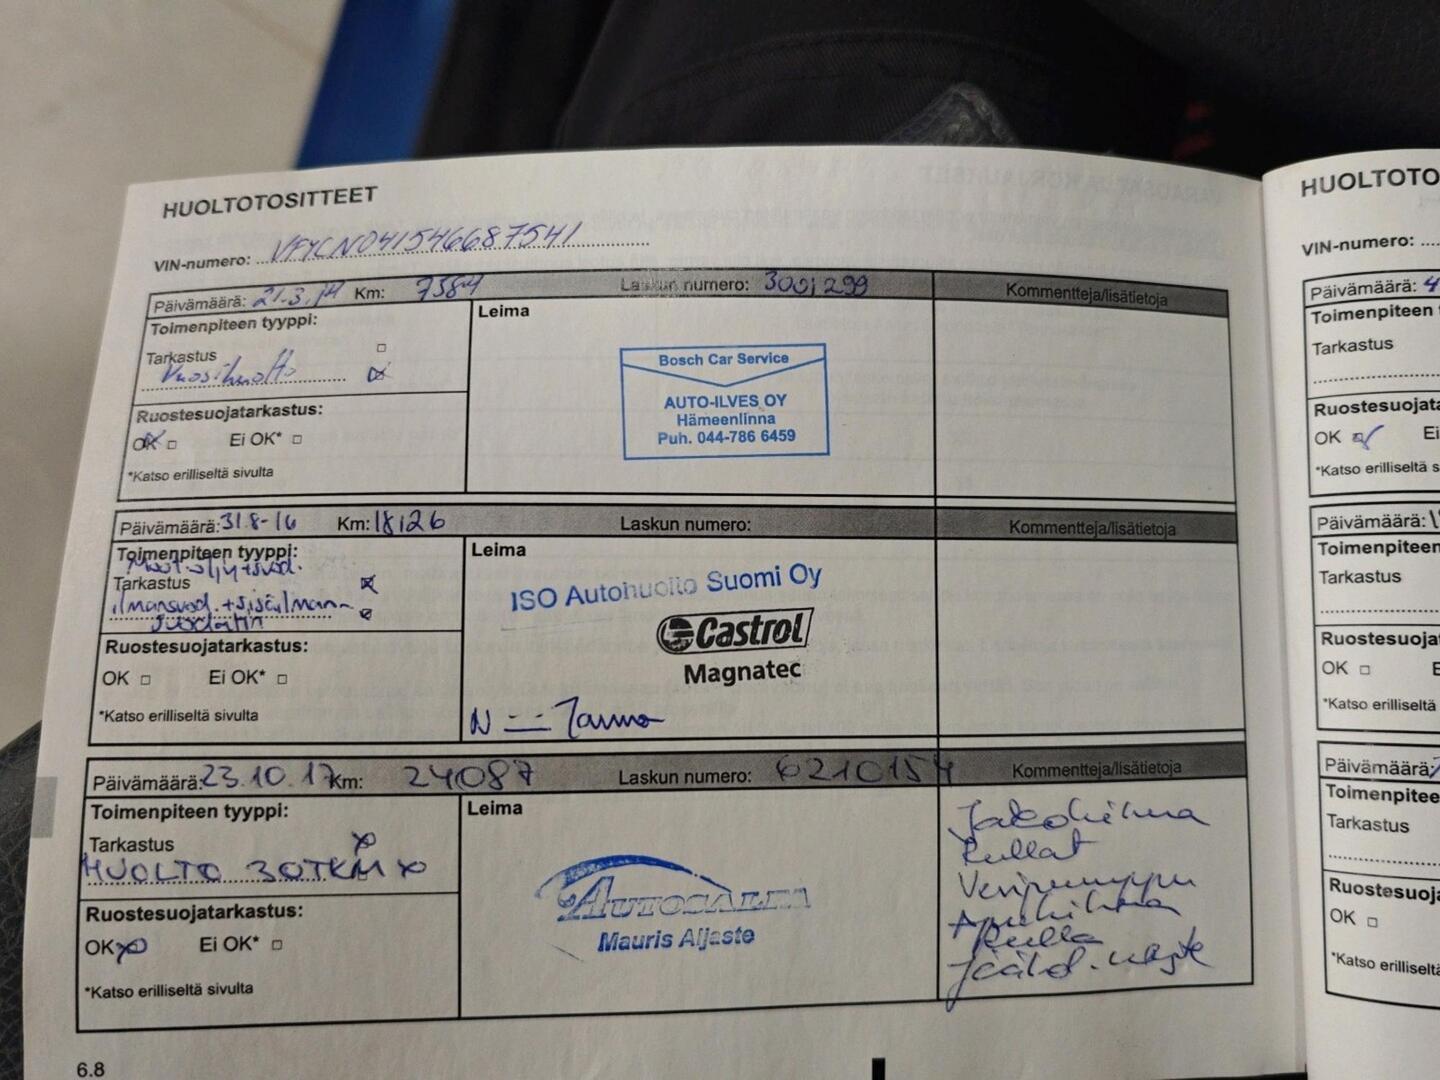 HUOLTOTOSITTEET
VIN-numero: VF4CN041546687541
Päivämäärä: 21.3.14 Km: 7584 Laskun numero: 3001299 Kommentteja/lisätietoja
Toimenpiteen tyyppi:
Leima
Tarkastus
Vuosihuolto
Bosch Car Service
AUTO-ILVES OY
Hämeenlinna
Puh. 044-786 6459
Ruostesuojatarkastus:
OK Ei OK*
*Katso erilliseltä sivulta
Päivämäärä: 31.8-16 Km: 18126 Laskun numero: Kommentteja/lisätietoja
Toimenpiteen tyyppi:
Leima
Moot.öljy+suod.
Tarkastus
ilmansuod.+sisäilman
suodatin
ISO Autohuolto Suomi Oy
Castrol
Magnatec
Ruostesuojatarkastus:
OK Ei OK*
*Katso erilliseltä sivulta
Päivämäärä: 23.10.17 Km: 24087 Laskun numero: 6210154 Kommentteja/lisätietoja
Toimenpiteen tyyppi:
Leima
Tarkastus
HUOLTO 30TKM
AUTOSALPA
Mauris Aljaste
Jakohihna
Rullat
Vesipumppu
Apuhihna
Rulla
Jäähd.neste
Ruostesuojatarkastus:
OK Ei OK*
*Katso erilliseltä sivulta
6.8
HUOLTOTO
VIN-numero:
Päivämäärä: 4
Toimenpiteen
Tarkastus
Ruostesuojata
OK Ei
*Katso erilliseltä s
Päivämäärä:
Toimenpiteen
Tarkastus
Ruostesuojat
OK
*Katso erilliseltä
Päivämäärä:
Toimenpitee
Tarkastus
Ruostesuoja
OK
*Katso erilliselt